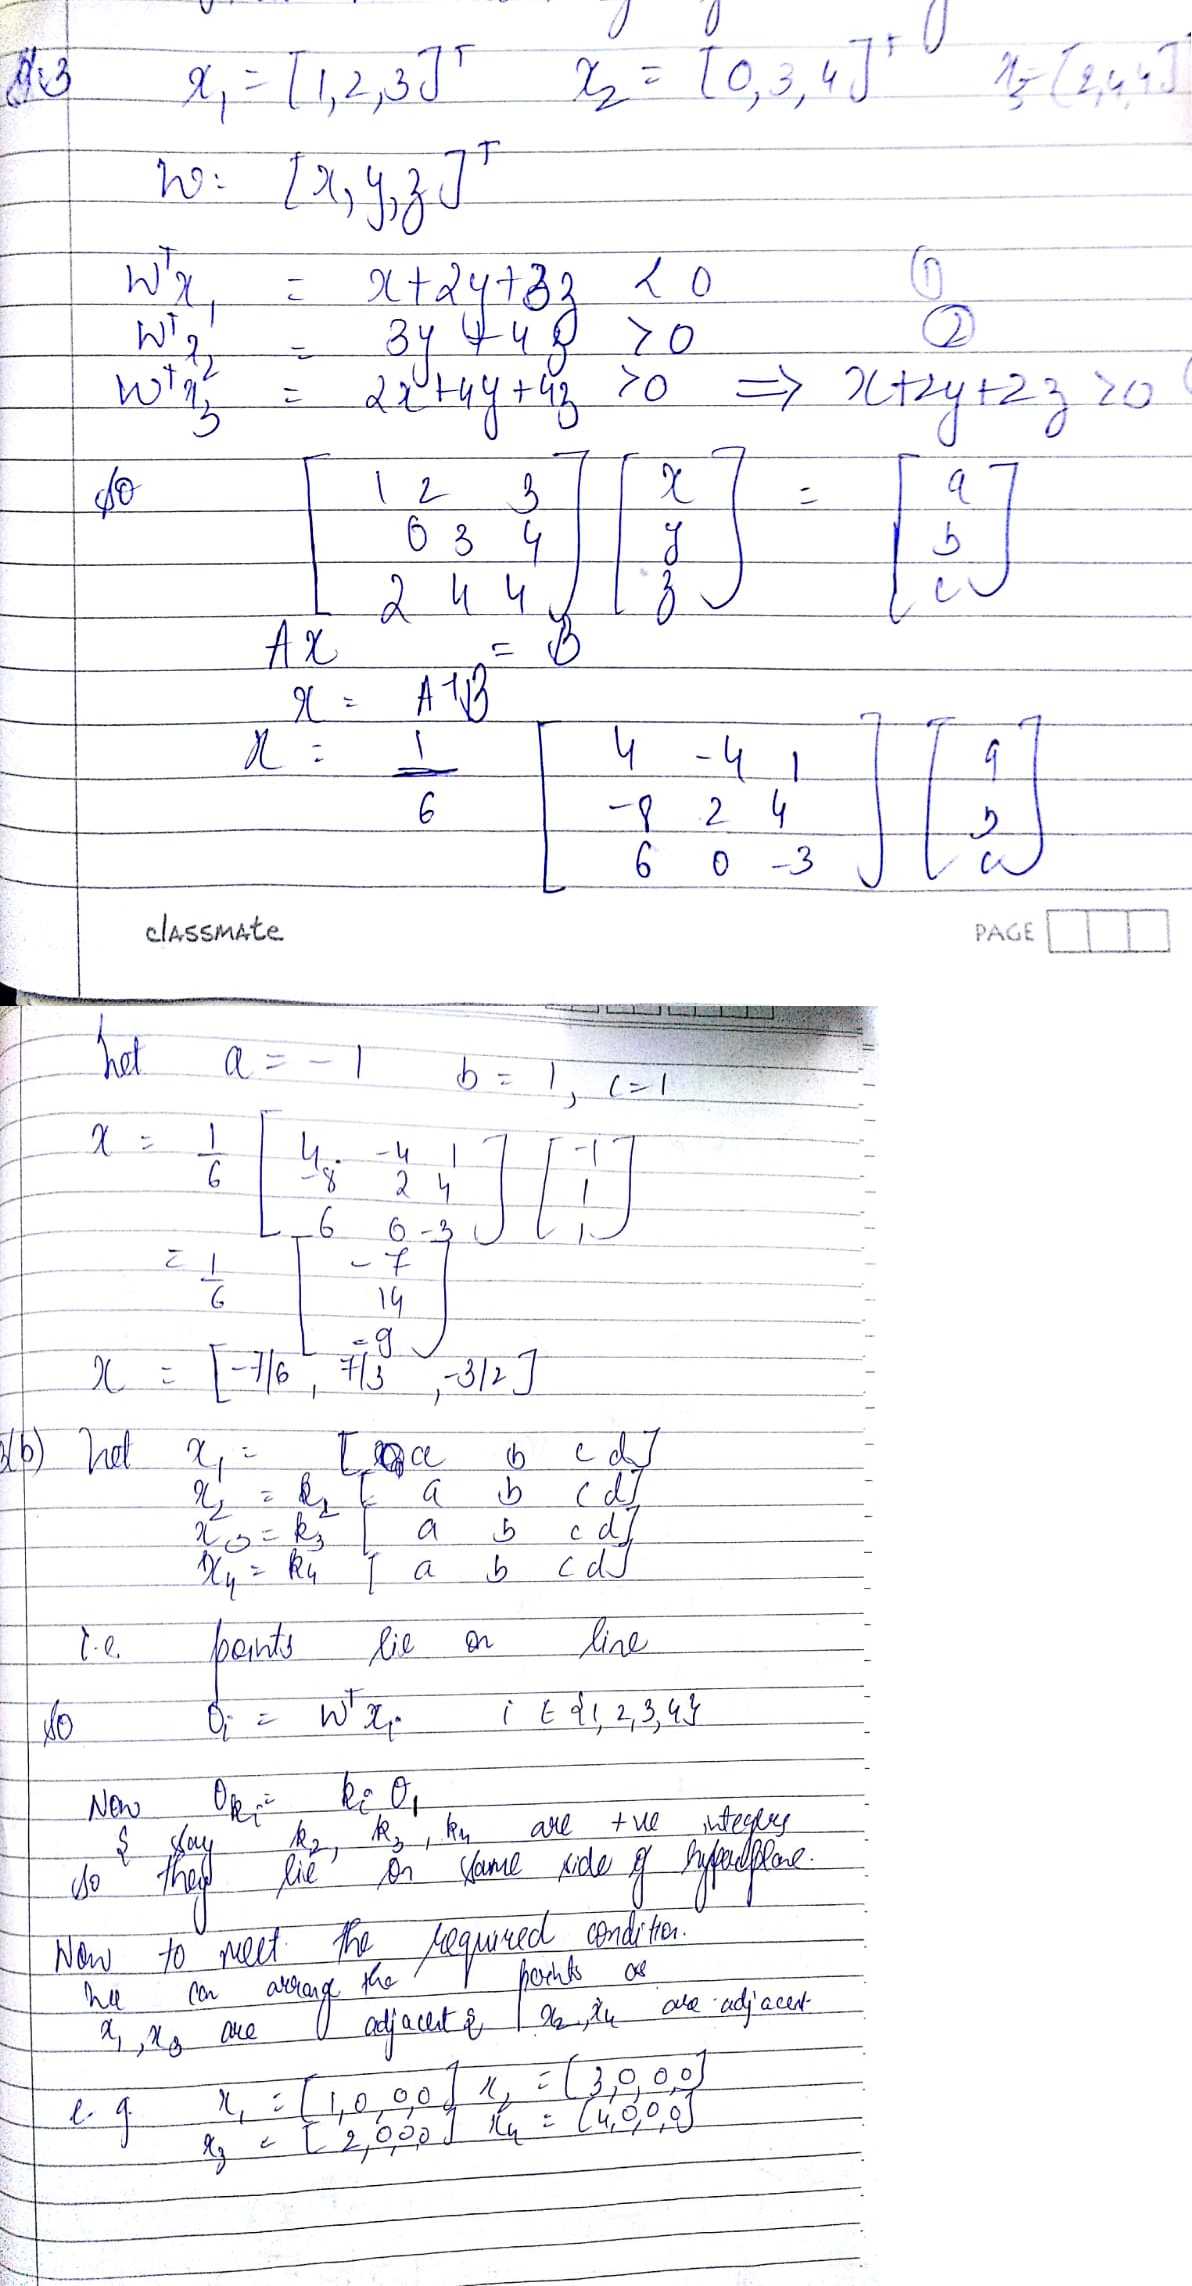 Q.3 x₁ = [1,2,3]ᵀ x₂ = [0,3,4]ᵀ x₃ = [2,4,4]
W = [x, y, z]ᵀ
Wᵀx₁ = x+2y+3z < 0 ①
Wᵀx₂ = 3y + 4z > 0 ②
Wᵀx₃ = 2x+4y+4z > 0 ⇒ x+2y+2z > 0
so [ 1 2 3 ] [ x ] = [ a ]
0 3 4 y b
2 4 4 z c
A x = B
x = A⁻¹B
x = 1/6 [ 4 -4 1 ] [ a ]
-8 2 4 b
6 0 -3 c
classmate PAGE
Let a = -1 b = 1, c = 1
x = 1/6 [ 4 -4 1 ] [ -1 ]
-8 2 4 1
6 0 -3 1
= 1/6 [ -7 ]
14
-9
x = [-7/6, 7/3, -3/2]
(b) Let x₁ = [ a b c d]
x₂ = k₂ [ a b c d]
x₃ = k₃ [ a b c d]
x₄ = k₄ [ a b c d]
i.e. points lie on line
so Oᵢ = Wᵀxᵢ i ∈ {1, 2, 3, 4}
Now Oₖᵢ = kᵢ O₁
& say k₂, k₃, k₄ are +ve integers
so they lie on same side of hyperplane.
Now to meet the required condition.
we can arrange the points as
x₁, x₃ are adjacent & x₂, x₄ are adjacent
e.g x₁ = [1,0,0,0] x₂ = [3,0,0,0]
x₃ = [2,0,0,0] x₄ = [4,0,0,0]